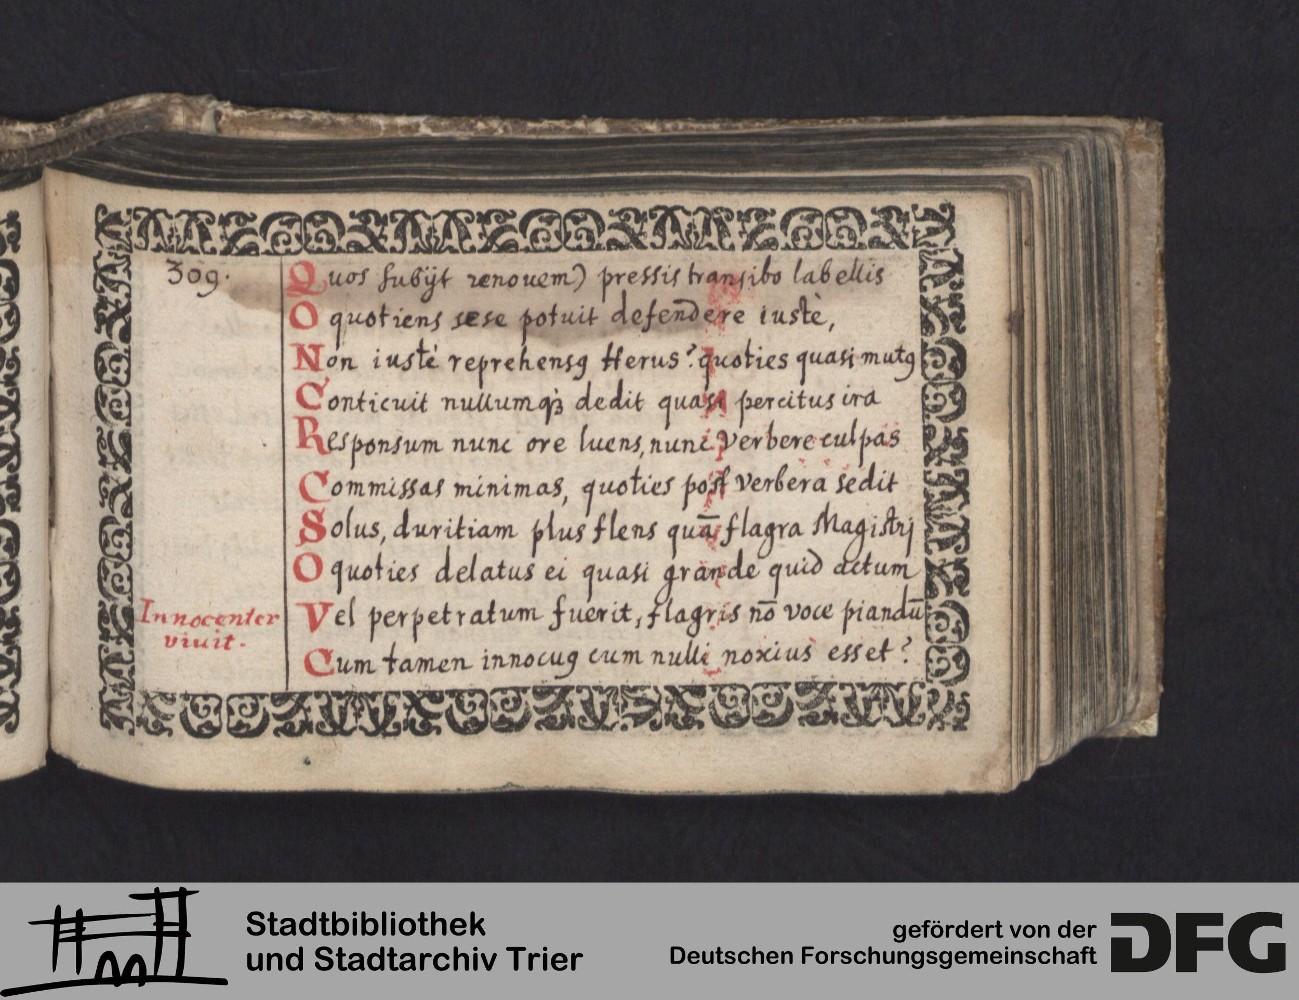 309.
Quos subijt renouem) pressis transibo labellis
O quotiens sese potuit defendere iustè,
Non iustè reprehensꝰ Herus? quoties quasi mutꝰ
Conticuit nullumqꝫ dedit quasi percitus ira
Responsum nunc ore luens, nunc verbere culpas
Commissas minimas, quoties post verbera sedit
Solus, duritiam plus flens quā flagra Magistrj
O quoties delatus ei quasi grande quid actum
Vel perpetratum fuerit, flagris nō voce piandū
Cum tamen innocuꝰ cum nulli noxius esset?
Innocenter
viuit.
Stadtbibliothek
und Stadtarchiv Trier
gefördert von der
Deutschen Forschungsgemeinschaft
DFG